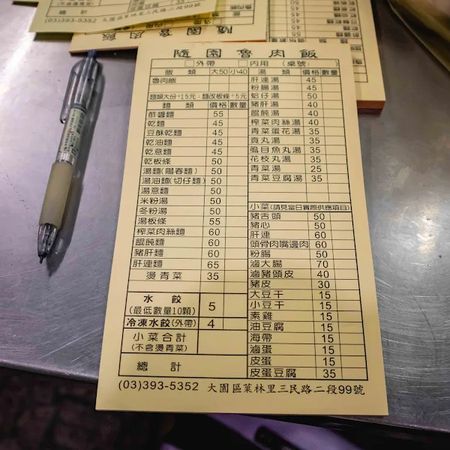 (03)393-5352
隨園魯肉飯
□外帶 □內用(桌號)
飯類 大50 小40
魯肉飯
麵類大份+15元、麵改板條+5元
麵類 價格 數量
炸醬麵 55
乾麵 45
豆酥乾麵 45
乾油麵 45
乾意麵 45
乾板條 50
湯麵(陽春麵) 50
湯油麵(切仔麵) 50
湯意麵 50
米粉湯 50
冬粉湯 50
湯板條 55
榨菜肉絲麵 60
餛飩麵 60
豬肝麵 60
肝連麵 65
燙青菜 35
水餃 5
(最低數量10顆)
冷凍水餃(外帶) 4
小菜合計
(不含燙青菜)
總計
湯類 價格 數量
肝連湯 45
粉腸湯 45
蛤仔湯 50
豬肝湯 40
餛飩湯 40
榨菜肉絲湯 40
青菜蛋花湯 35
貢丸湯 35
虱目魚丸湯 35
花枝丸湯 35
青菜湯 25
青菜豆腐湯 35
小菜(請見當日實際供應項目)
豬舌頭 50
豬心 50
肝連 60
頭骨肉嘴邊肉 60
粉腸 50
滷大腸 70
滷豬頭皮 40
豬皮 30
大豆干 15
小豆干 15
素雞 15
油豆腐 15
海帶 15
滷蛋 15
皮蛋 15
皮蛋豆腐 35
(03)393-5352 大園區菓林里三民路二段99號